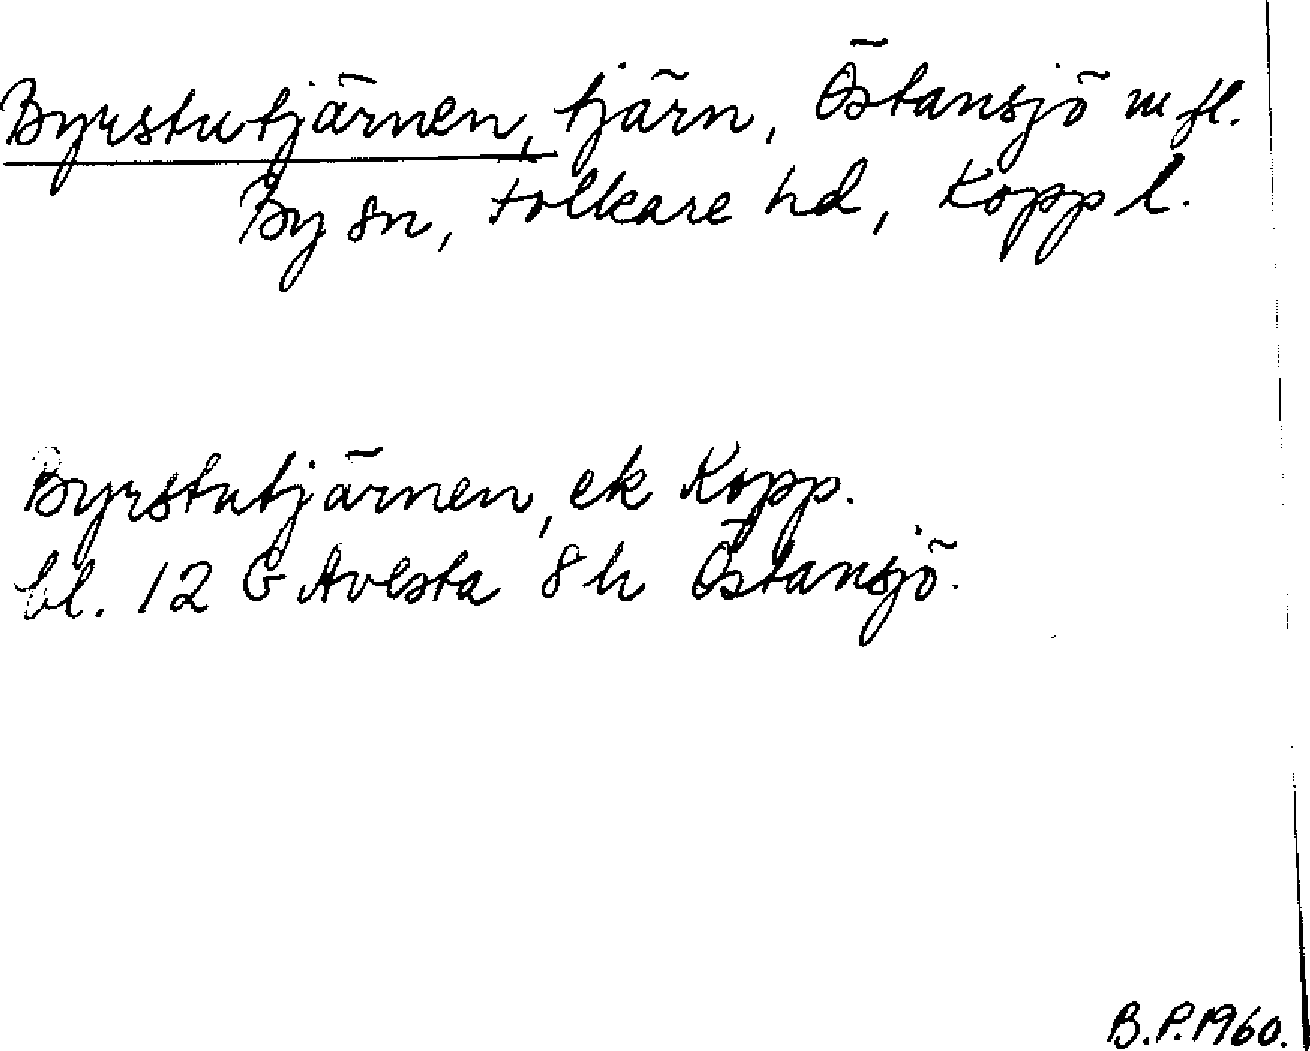 Byrstutjärnen, tjärn, Östansjö m fl.
By sn, Folkare hd, Kopp l.
Byrstutjärnen, ek Kopp.
bl. 12 G Avesta 8 h Östansjö.
B.P.1960.